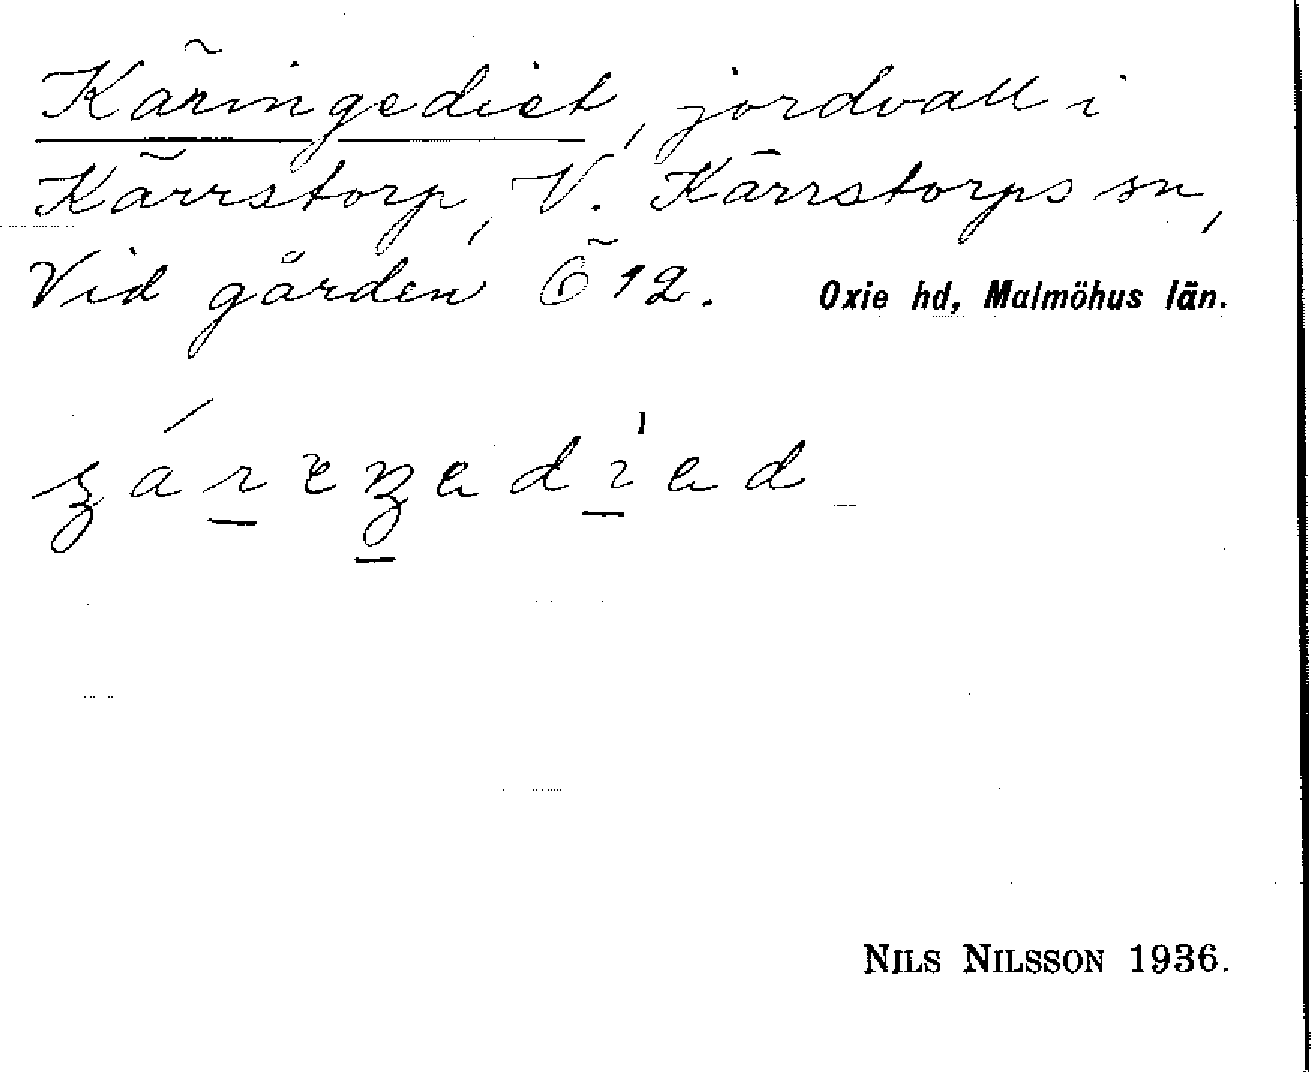 Käringediet, jordvall i
Kärrstorp, V. Kärrstorps sn,
Vid gården Ö 12. Oxie hd, Malmöhus län.
NILS NILSSON 1936.